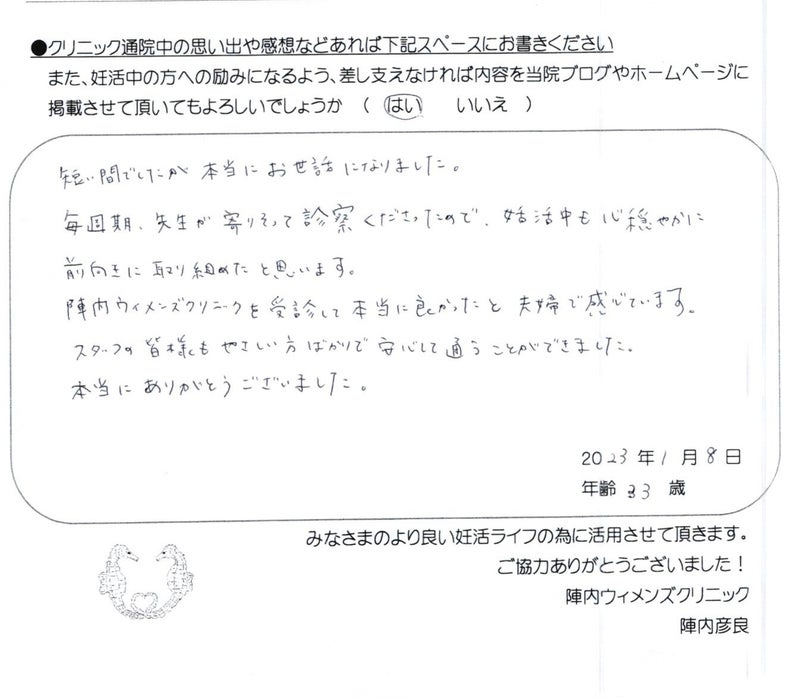 ●クリニック通院中の思い出や感想などあれば下記スペースにお書きください
また、妊活中の方への励みになるよう、差し支えなければ内容を当院ブログやホームページに
掲載させて頂いてもよろしいでしょうか （ はい いいえ ）
短い間でしたが 本当に お世話になりました。
毎周期、先生が 寄りそって 診察くださったので、妊活中も 心穏やかに
前向きに 取り組めたと思います。
陣内ウィメンズクリニックを受診して 本当に良かったと 夫婦で感じています。
スタッフの皆様も やさしい方ばかりで 安心して通うことができました。
本当に ありがとうございました。
2023 年 1 月 8 日
年齢 33 歳
みなさまのより良い妊活ライフの為に活用させて頂きます。
ご協力ありがとうございました！
陣内ウィメンズクリニック
陣内彦良